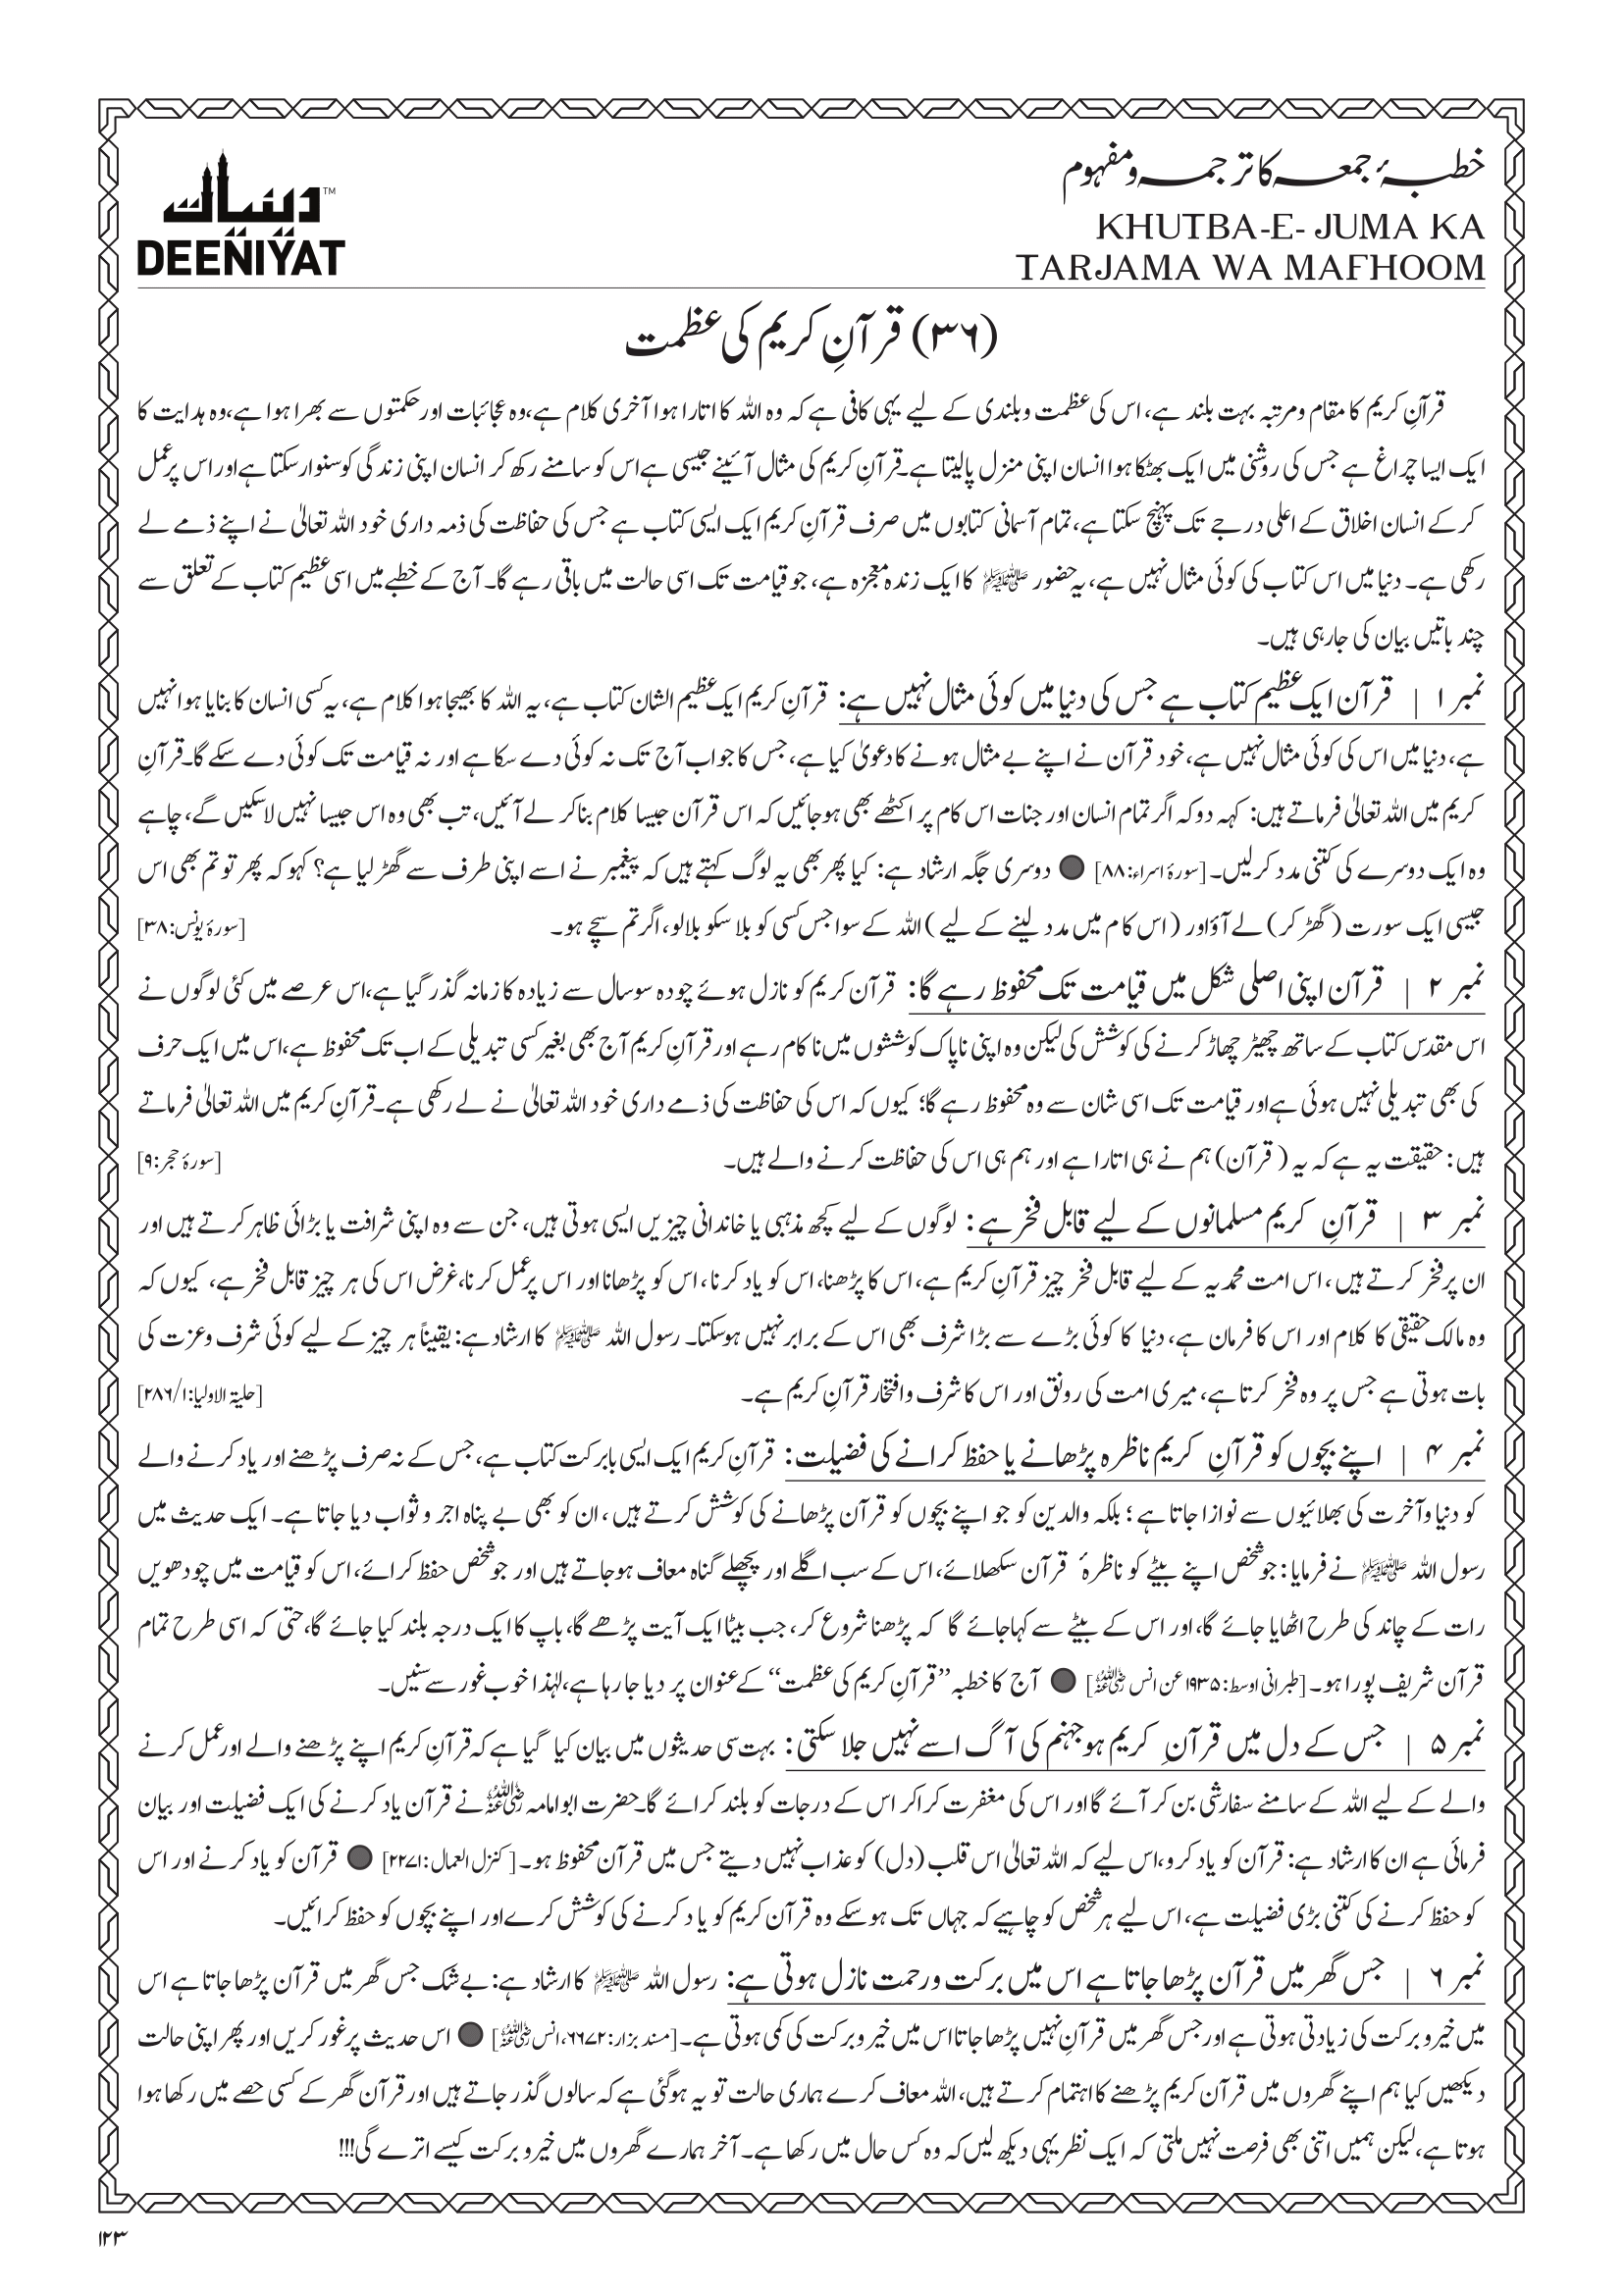 خطبۂ جمعہ کا ترجمہ و مفہوم
KHUTBA-E- JUMA KA
TARJAMA WA MAFHOOM
دینیات™
DEENIYAT
(۳۶) قرآنِ کریم کی عظمت
قرآنِ کریم کا مقام ومرتبہ بہت بلند ہے، اس کی عظمت وبلندی کے لیے یہی کافی ہے کہ وہ اللہ کا اتارا ہوا آخری کلام ہے، وہ عجائبات اور حکمتوں سے بھرا ہوا ہے، وہ ہدایت کا
ایک ایسا چراغ ہے جس کی روشنی میں ایک بھٹکا ہوا انسان اپنی منزل پالیتا ہے۔ قرآنِ کریم کی مثال آئینے جیسی ہے اس کو سامنے رکھ کر انسان اپنی زندگی کو سنوار سکتا ہے اور اس پر عمل
کر کے انسان اخلاق کے اعلی درجے تک پہنچ سکتا ہے، تمام آسمانی کتابوں میں صرف قرآنِ کریم ایک ایسی کتاب ہے جس کی حفاظت کی ذمہ داری خود اللہ تعالیٰ نے اپنے ذمے لے
رکھی ہے۔ دنیا میں اس کتاب کی کوئی مثال نہیں ہے، یہ حضور ﷺ کا ایک زندہ معجزہ ہے، جو قیامت تک اسی حالت میں باقی رہے گا۔ آج کے خطبے میں اسی عظیم کتاب کے تعلق سے
چند باتیں بیان کی جارہی ہیں۔
نمبر ۱ | قرآن ایک عظیم کتاب ہے جس کی دنیا میں کوئی مثال نہیں ہے: قرآنِ کریم ایک عظیم الشان کتاب ہے، یہ اللہ کا بھیجا ہوا کلام ہے، یہ کسی انسان کا بنایا ہوا نہیں
ہے، دنیا میں اس کی کوئی مثال نہیں ہے، خود قرآن نے اپنے بے مثال ہونے کا دعویٰ کیا ہے، جس کا جواب آج تک نہ کوئی دے سکا ہے اور نہ قیامت تک کوئی دے سکے گا۔ قرآنِ
کریم میں اللہ تعالیٰ فرماتے ہیں: کہہ دو کہ اگر تمام انسان اور جنات اس کام پر اکٹھے بھی ہوجائیں کہ اس قرآن جیسا کلام بنا کر لے آئیں، تب بھی وہ اس جیسا نہیں لاسکیں گے، چاہے
وہ ایک دوسرے کی کتنی مدد کرلیں۔ [سورۂ اسراء: ۸۸] ● دوسری جگہ ارشاد ہے: کیا پھر بھی یہ لوگ کہتے ہیں کہ پیغمبر نے اسے اپنی طرف سے گھڑ لیا ہے؟ کہو کہ پھر تو تم بھی اس
جیسی ایک سورت (گھڑ کر) لے آؤ اور (اس کام میں مدد لینے کے لیے) اللہ کے سوا جس کسی کو بلا سکو بلالو، اگر تم سچے ہو۔ [سورۂ یونس: ۳۸]
نمبر ۲ | قرآن اپنی اصلی شکل میں قیامت تک محفوظ رہے گا: قرآن کریم کو نازل ہوئے چودہ سو سال سے زیادہ کا زمانہ گذر گیا ہے، اس عرصے میں کئی لوگوں نے
اس مقدس کتاب کے ساتھ چھیڑ چھاڑ کرنے کی کوشش کی لیکن وہ اپنی ناپاک کوششوں میں ناکام رہے اور قرآنِ کریم آج بھی بغیر کسی تبدیلی کے اب تک محفوظ ہے، اس میں ایک حرف
کی بھی تبدیلی نہیں ہوئی ہے اور قیامت تک اسی شان سے وہ محفوظ رہے گا؛ کیوں کہ اس کی حفاظت کی ذمے داری خود اللہ تعالیٰ نے لے رکھی ہے۔ قرآنِ کریم میں اللہ تعالیٰ فرماتے
ہیں: حقیقت یہ ہے کہ یہ (قرآن) ہم نے ہی اتارا ہے اور ہم ہی اس کی حفاظت کرنے والے ہیں۔ [سورۂ حجر: ۹]
نمبر ۳ | قرآنِ کریم مسلمانوں کے لیے قابل فخر ہے: لوگوں کے لیے کچھ مذہبی یا خاندانی چیزیں ایسی ہوتی ہیں، جن سے وہ اپنی شرافت یا بڑائی ظاہر کرتے ہیں اور
ان پر فخر کرتے ہیں، اس امت محمدیہ کے لیے قابل فخر چیز قرآنِ کریم ہے، اس کا پڑھنا، اس کو یاد کرنا، اس کو پڑھانا اور اس پر عمل کرنا، غرض اس کی ہر چیز قابل فخر ہے، کیوں کہ
وہ مالک حقیقی کا کلام اور اس کا فرمان ہے، دنیا کا کوئی بڑے سے بڑا شرف بھی اس کے برابر نہیں ہوسکتا۔ رسول اللہ ﷺ کا ارشاد ہے: یقیناً ہر چیز کے لیے کوئی شرف وعزت کی
بات ہوتی ہے جس پر وہ فخر کرتا ہے، میری امت کی رونق اور اس کا شرف وافتخار قرآنِ کریم ہے۔ [حلیۃ الاولیا: ۲۸۶/۱]
نمبر ۴ | اپنے بچوں کو قرآنِ کریم ناظرہ پڑھانے یا حفظ کرانے کی فضیلت: قرآنِ کریم ایک ایسی بابرکت کتاب ہے، جس کے نہ صرف پڑھنے اور یاد کرنے والے
کو دنیا وآخرت کی بھلائیوں سے نوازا جاتا ہے؛ بلکہ والدین کو جو اپنے بچوں کو قرآن پڑھانے کی کوشش کرتے ہیں، ان کو بھی بے پناہ اجر وثواب دیا جاتا ہے۔ ایک حدیث میں
رسول اللہ ﷺ نے فرمایا: جو شخص اپنے بیٹے کو ناظرہٴ قرآن سکھلائے، اس کے سب اگلے اور پچھلے گناہ معاف ہوجاتے ہیں اور جو شخص حفظ کرائے، اس کو قیامت میں چودھویں
رات کے چاند کی طرح اٹھایا جائے گا، اور اس کے بیٹے سے کہا جائے گا کہ پڑھنا شروع کر، جب بیٹا ایک آیت پڑھے گا، باپ کا ایک درجہ بلند کیا جائے گا، حتی کہ اسی طرح تمام
قرآن شریف پورا ہو۔ [طبرانی اوسط: ۱۹۳۵ عن انس رضی اللہ عنہ] ● آج کا خطبہ ”قرآنِ کریم کی عظمت“ کے عنوان پر دیا جا رہا ہے، لہٰذا خوب غور سے سنیں۔
نمبر ۵ | جس کے دل میں قرآنِ کریم ہو جہنم کی آگ اسے نہیں جلا سکتی: بہت سی حدیثوں میں بیان کیا گیا ہے کہ قرآنِ کریم اپنے پڑھنے والے اور عمل کرنے
والے کے لیے اللہ کے سامنے سفارشی بن کر آئے گا اور اس کی مغفرت کرا کر اس کے درجات کو بلند کرائے گا۔ حضرت ابوامامہ رضی اللہ عنہ نے قرآن یاد کرنے کی ایک فضیلت اور بیان
فرمائی ہے ان کا ارشاد ہے: قرآن کو یاد کرو، اس لیے کہ اللہ تعالیٰ اس قلب (دل) کو عذاب نہیں دیتے جس میں قرآن محفوظ ہو۔ [کنزل العمال: ۲۲۷۱] ● قرآن کو یاد کرنے اور اس
کو حفظ کرنے کی کتنی بڑی فضیلت ہے، اس لیے ہر شخص کو چاہیے کہ جہاں تک ہو سکے وہ قرآن کریم کو یاد کرنے کی کوشش کرے اور اپنے بچوں کو حفظ کرائیں۔
نمبر ۶ | جس گھر میں قرآن پڑھا جاتا ہے اس میں برکت ورحمت نازل ہوتی ہے: رسول اللہ ﷺ کا ارشاد ہے: بے شک جس گھر میں قرآن پڑھا جاتا ہے اس
میں خیر و برکت کی زیادتی ہوتی ہے اور جس گھر میں قرآنِ نہیں پڑھا جاتا اس میں خیر و برکت کی کمی ہوتی ہے۔ [مسند بزار: ۶۶۷۲، انس رضی اللہ عنہ] ● اس حدیث پر غور کریں اور پھر اپنی حالت
دیکھیں کیا ہم اپنے گھروں میں قرآن کریم پڑھنے کا اہتمام کرتے ہیں، اللہ معاف کرے ہماری حالت تو یہ ہوگئی ہے کہ سالوں گذر جاتے ہیں اور قرآن گھر کے کسی حصے میں رکھا ہوا
ہوتا ہے، لیکن ہمیں اتنی بھی فرصت نہیں ملتی کہ ایک نظر یہی دیکھ لیں کہ وہ کس حال میں رکھا ہے۔ آخر ہمارے گھروں میں خیر و برکت کیسے اترے گی!!!
۱۲۳